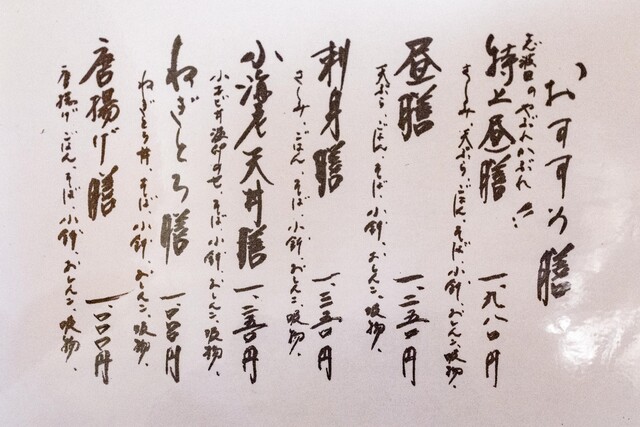 おすすめ膳
志波田のやぶれかぶれ!!
特上昼膳 一、九八〇円
さしみ、天ぷら、ごはん、そば、小鉢、おしんこ、吸物、
昼膳 一、二五〇円
天ぷら、ごはん、そば、小鉢、おしんこ、吸物、
刺身膳 一、三五〇円
さしみ、ごはん、そば、小鉢、おしんこ、吸物、
小海老天丼膳 一、二五〇円
小エビ丼 そば、小鉢、おしんこ、吸物、
ねぎとろ膳 円
ねぎとろ丼、そば、小鉢、おしんこ、吸物、
唐揚げ膳 一、〇〇〇円
唐揚げ、ごはん、そば、小鉢、おしんこ、吸物、